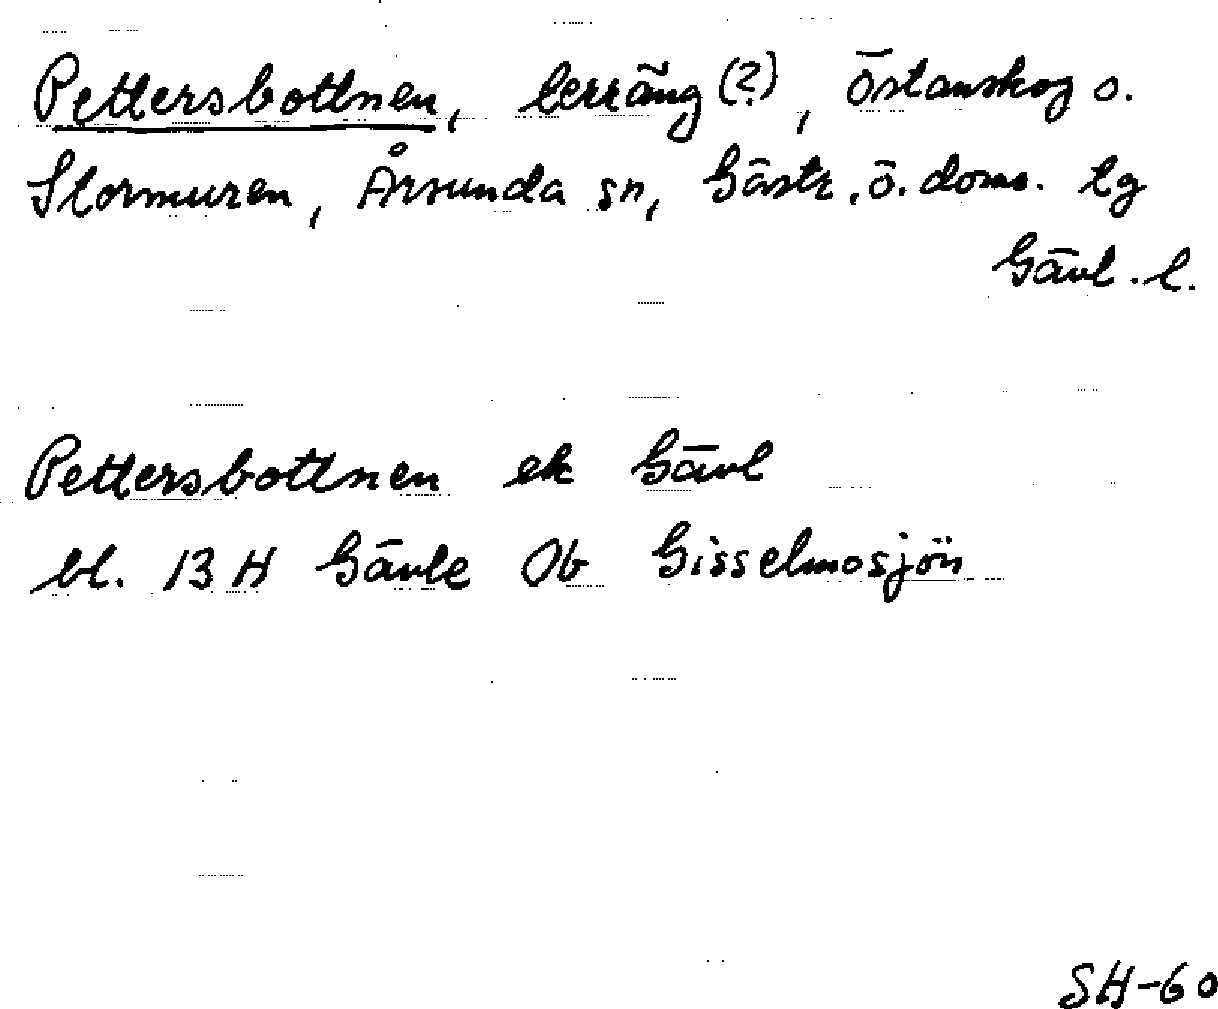 Pettersbottnen, terräng (?), Östanskog o.
Stormuren, Årsunda sn, Gästr. ö. doms. tg
Gävl. l.
Pettersbottnen ek Gävl
bl. 13 H Gävle 0b Gisselmosjön
SH-60